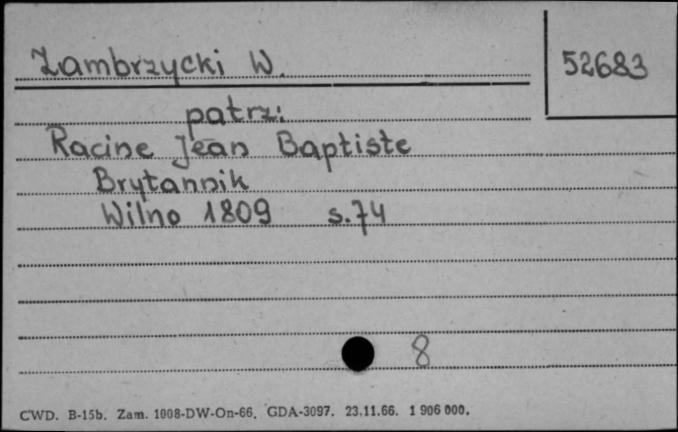 Zambrzycki W.
52683
patrz:
Racine Jean Baptiste
Brytannik
Wilno 1809 s.74
8
CWD. B-15b. Zam. 1008-DW-On-66. GDA-3097. 23.11.66. 1 906 000.